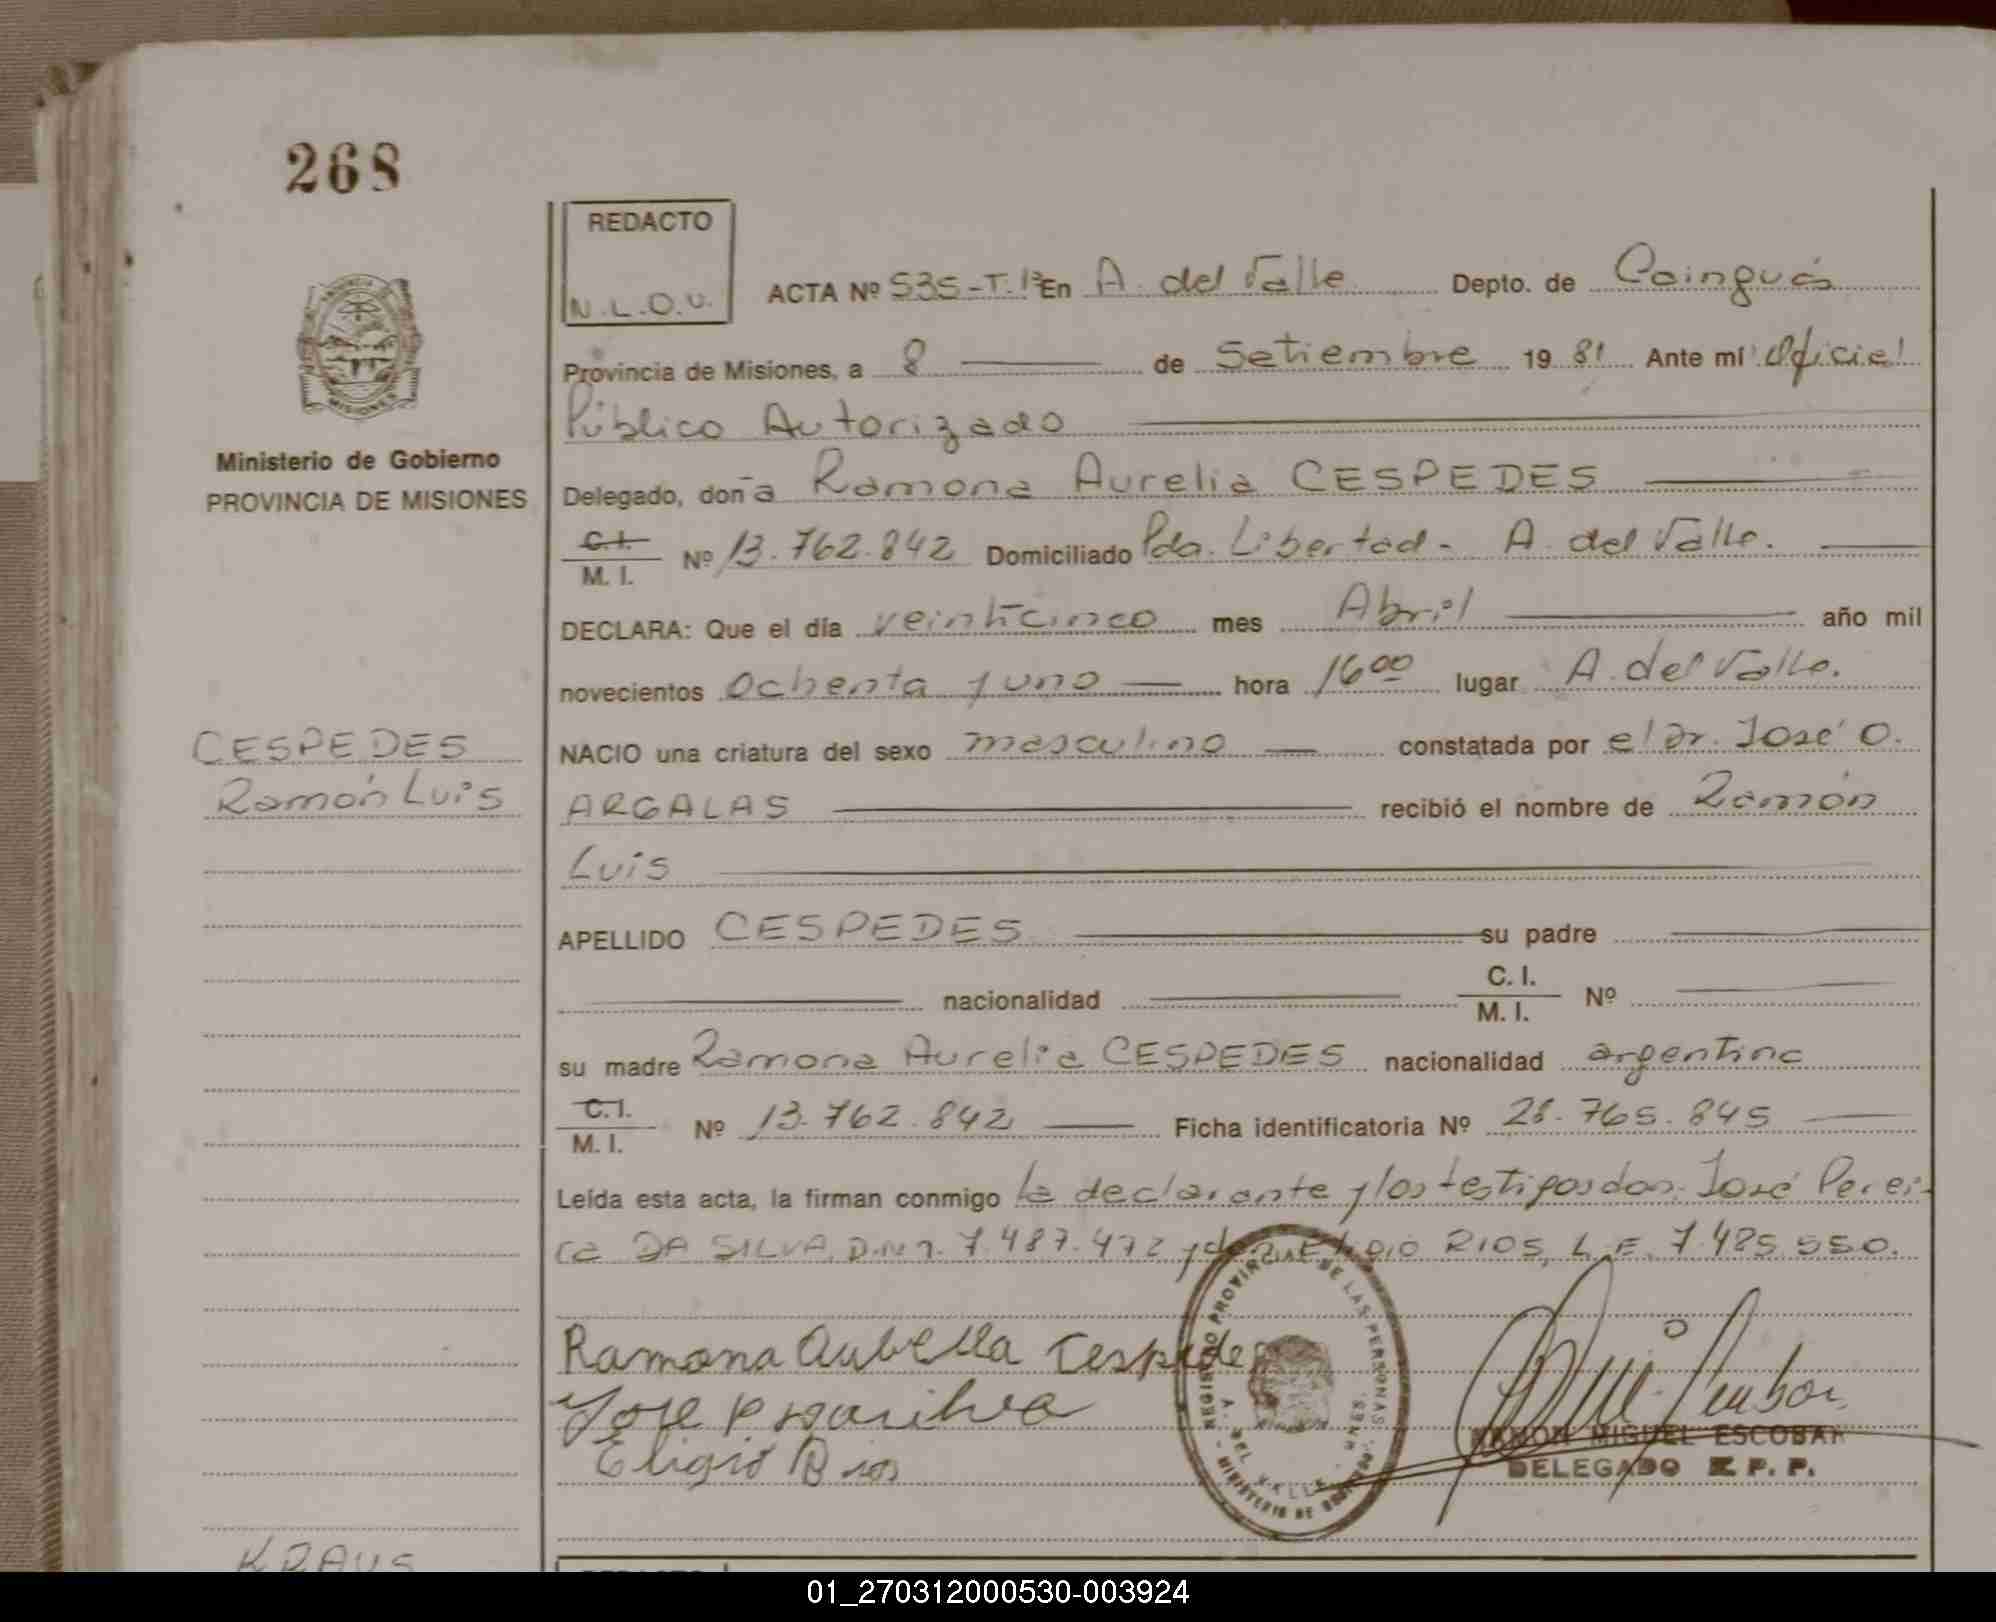 268
REDACTO
N.L.O.U.
ACTA Nº 535-T.1º En A. del Valle Depto. de Cainguás
Provincia de Misiones, a 8 de Setiembre 1981 Ante mí Oficial
Público Autorizado
Ministerio de Gobierno
PROVINCIA DE MISIONES
Delegado, doña Ramona Aurelia CESPEDES
C.I.
M. I. Nº 13.762.842 Domiciliado Pda. Libertad - A. del Valle.
DECLARA: Que el día veinticinco mes Abril año mil
novecientos ochenta y uno hora 16 00 lugar A. del Valle.
CESPEDES
Ramón Luis
NACIO una criatura del sexo masculino constatada por el Dr. José O.
ARGALAS recibió el nombre de Ramón
Luis
APELLIDO CESPEDES su padre
nacionalidad C. I. M. I. Nº
su madre Ramona Aurelia CESPEDES nacionalidad argentina
C.I.
M. I. Nº 13.762.842 Ficha identificatoria Nº 28.765.845
Leída esta acta, la firman conmigo la declarante y los testigos don: José Perei-
ra DA SILVA, D.N.I. 7.487.472 y don ELIGIO RIOS, L.E. 7.485.550.
Ramona Cespedes
Jose
Eligio Rios
REGISTRO PROVINCIAL DE LAS PERSONAS
A. DEL VALLE
MINISTERIO DE GOBIERNO
RAMON MIGUEL ESCOBAR
DELEGADO R. P. P.
KRAUS
REDACTO
01_270312000530-003924